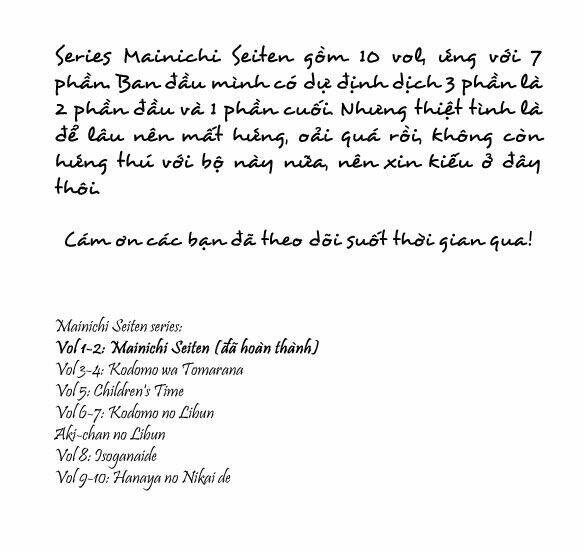 Series Mainichi Seiten gồm 10 vol, ứng với 7
phần. Ban đầu mình có dự định dịch 3 phần là
2 phần đầu và 1 phần cuối. Nhưng thiệt tình là
để lâu nên mất hứng, oải quá rồi, không còn
hứng thú với bộ này nữa, nên xin kiếu ở đây
thôi.
Cám ơn các bạn đã theo dõi suốt thời gian qua!
Mainichi Seiten series:
Vol 1-2: Mainichi Seiten (đã hoàn thành)
Vol 3-4: Kodomo wa Tomarana
Vol 5: Children's Time
Vol 6-7: Kodomo no Libun
Aki-chan no Libun
Vol 8: Isoganaide
Vol 9-10: Hanaya no Nikai de